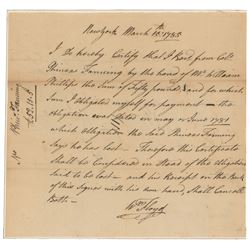 New york March 10th 1785
I do hereby Certify that I Rec'd from Colo
Phineas Fanning by the hand of Mr William
Phillips the Sum of Fifty pounds and for which
Sum I obligated myself for payment — the
obligation was dated in may or June 1781
which obligation the said Phineas Fanning
says he has lost — Therefore this Certificate
Shall be Considered in Stead of the obligation
said to be lost — and his Receipt on the Back
of this Signed with his own hand Shall Cancell
Both —
Wm Floyd
Phins Fanning
£52.10.5